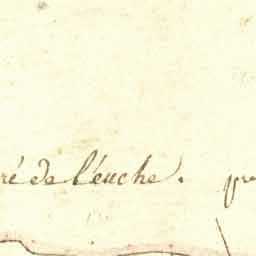 ré de l'euche. pre